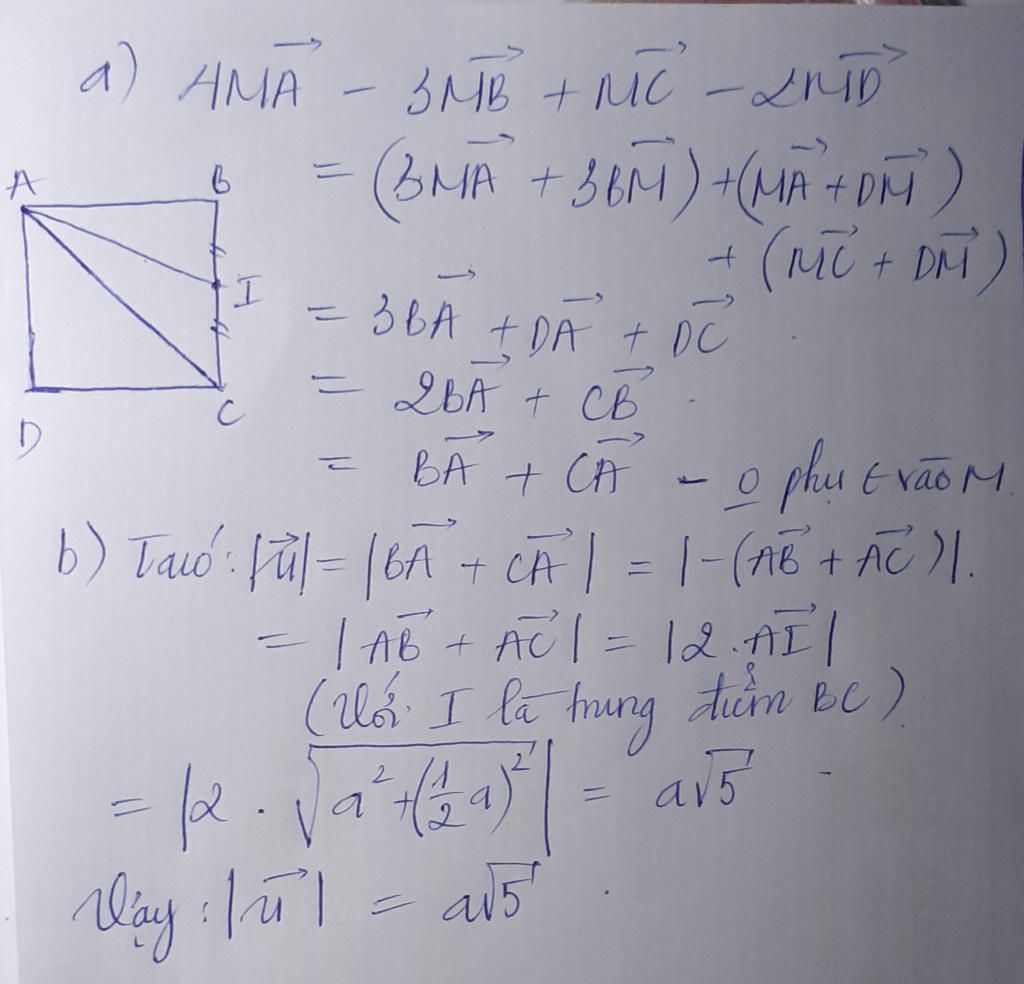 a) 4M\overrightarrow{A} - 3\overrightarrow{MB} + \overrightarrow{MC} - 2\overrightarrow{MD}
= (3\overrightarrow{MA} + 3\overrightarrow{BM}) + (\overrightarrow{MA} + \overrightarrow{DM})
+ (\overrightarrow{MC} + \overrightarrow{DM})
= 3\overrightarrow{BA} + \overrightarrow{DA} + \overrightarrow{DC}
= 2\overrightarrow{BA} + \overrightarrow{CB}
= \overrightarrow{BA} + \overrightarrow{CA} - o phụ t vào M.
A B
I
D C
b) Ta có: |\overrightarrow{u}| = |\overrightarrow{BA} + \overrightarrow{CA}| = |-(\overrightarrow{AB} + \overrightarrow{AC})|.
= |\overrightarrow{AB} + \overrightarrow{AC}| = |2.\overrightarrow{AI}|
(Với I là trung điểm BC)
= |2 . \sqrt{a^2 + (\frac{1}{2}a)^2}| = a\sqrt{5}
Vậy: |\overrightarrow{u}| = a\sqrt{5}.